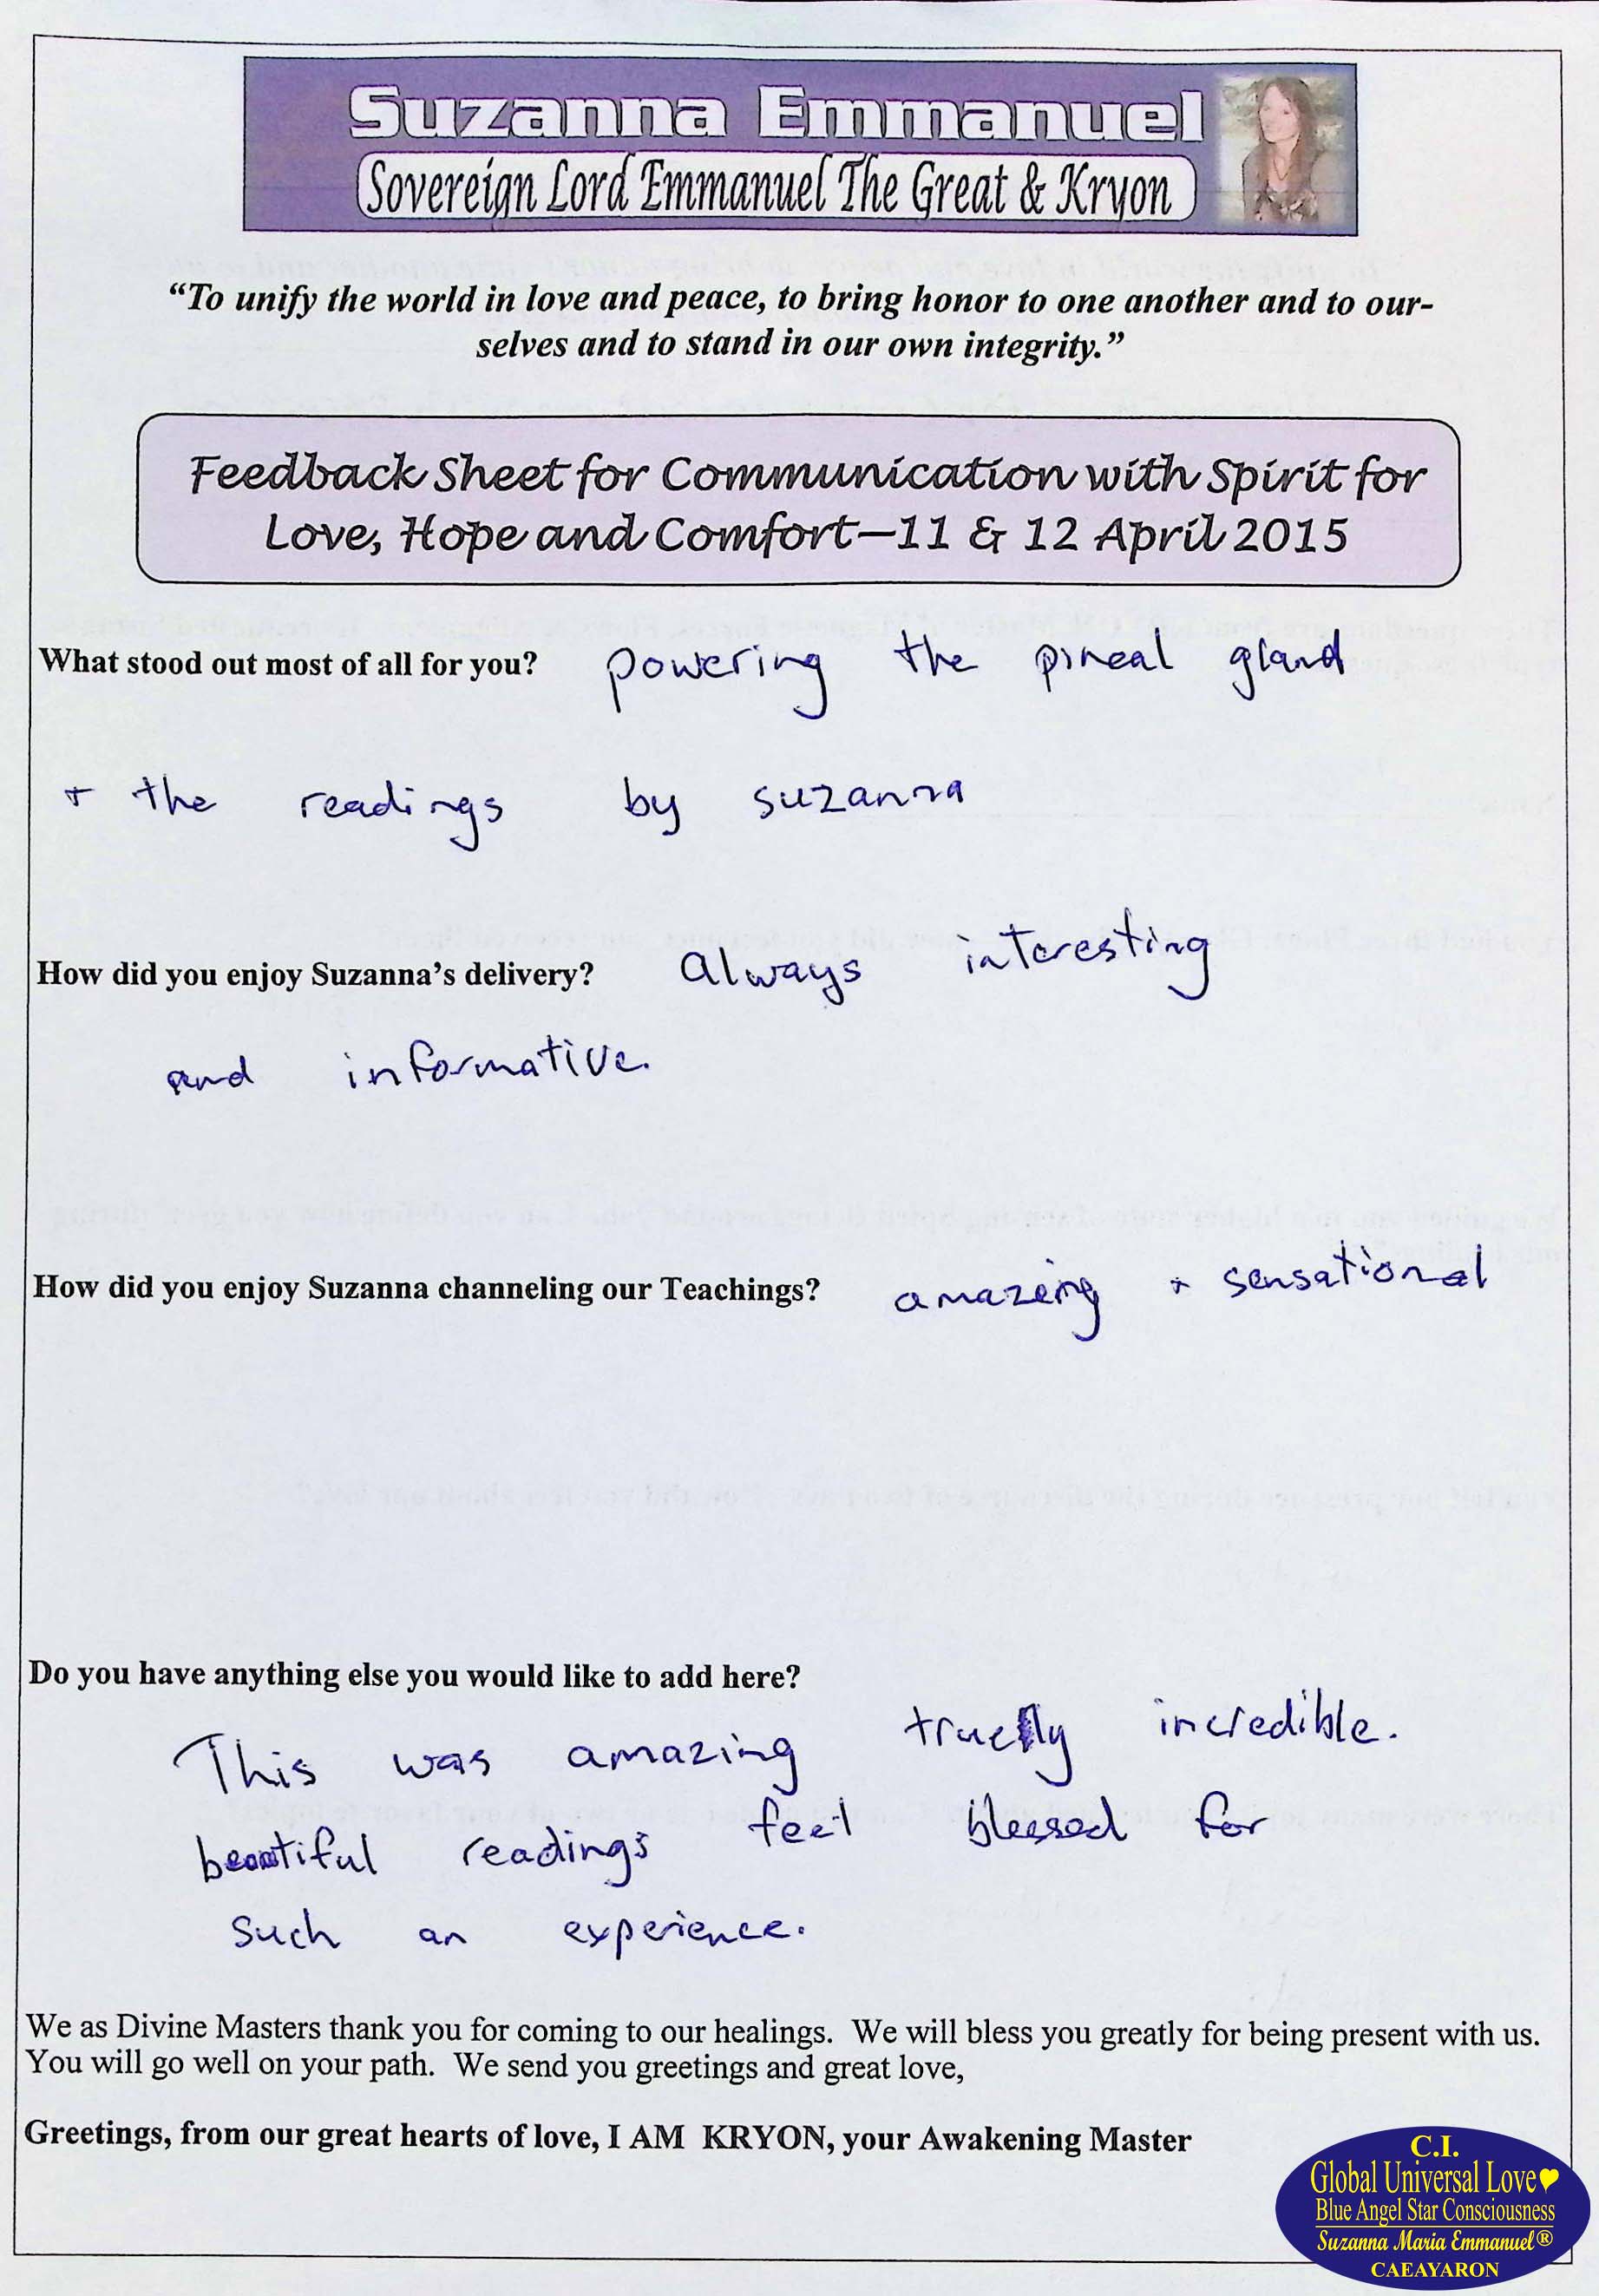 Suzanna Emmanuel
Sovereign Lord Emmanuel The Great & Kryon
“To unify the world in love and peace, to bring honor to one another and to our-
selves and to stand in our own integrity.”
Feedback Sheet for Communication with Spirit for
Love, Hope and Comfort—11 & 12 April 2015
What stood out most of all for you? powering the pineal gland
+ the readings by suzanna
How did you enjoy Suzanna’s delivery? always interesting
and informative.
How did you enjoy Suzanna channeling our Teachings? amazing + sensational
Do you have anything else you would like to add here?
This was amazing truely incredible.
beautiful readings feel blessed for
such an experience.
We as Divine Masters thank you for coming to our healings. We will bless you greatly for being present with us.
You will go well on your path. We send you greetings and great love,
Greetings, from our great hearts of love, I AM KRYON, your Awakening Master
C.I.
Global Universal Love
Blue Angel Star Consciousness
Suzanna Maria Emmanuel®
CAEAYARON